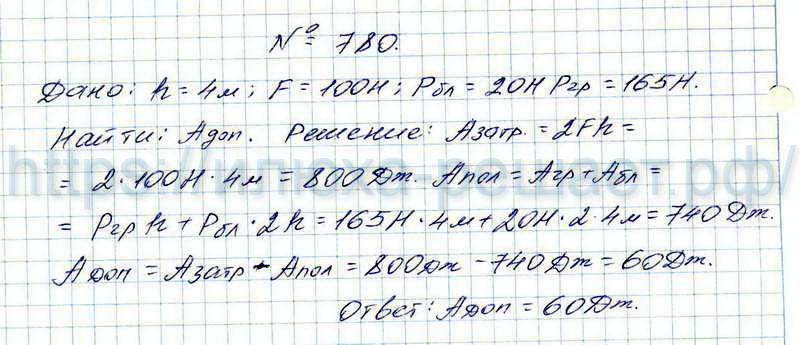 № 780.
Дано: h = 4м; F = 100Н; Рбл = 20Н Ргр = 165Н.
Найти: Адоп. Решение: Азатр. = 2Fh =
= 2·100Н·4м = 800Дж. Апол = Агр + Абл =
= Ргр h + Рбл·2h = 165Н·4м + 20Н·2·4м = 740Дж.
Адоп = Азатр - Апол = 800Дж - 740Дж = 60Дж.
Ответ: Адоп = 60Дж.